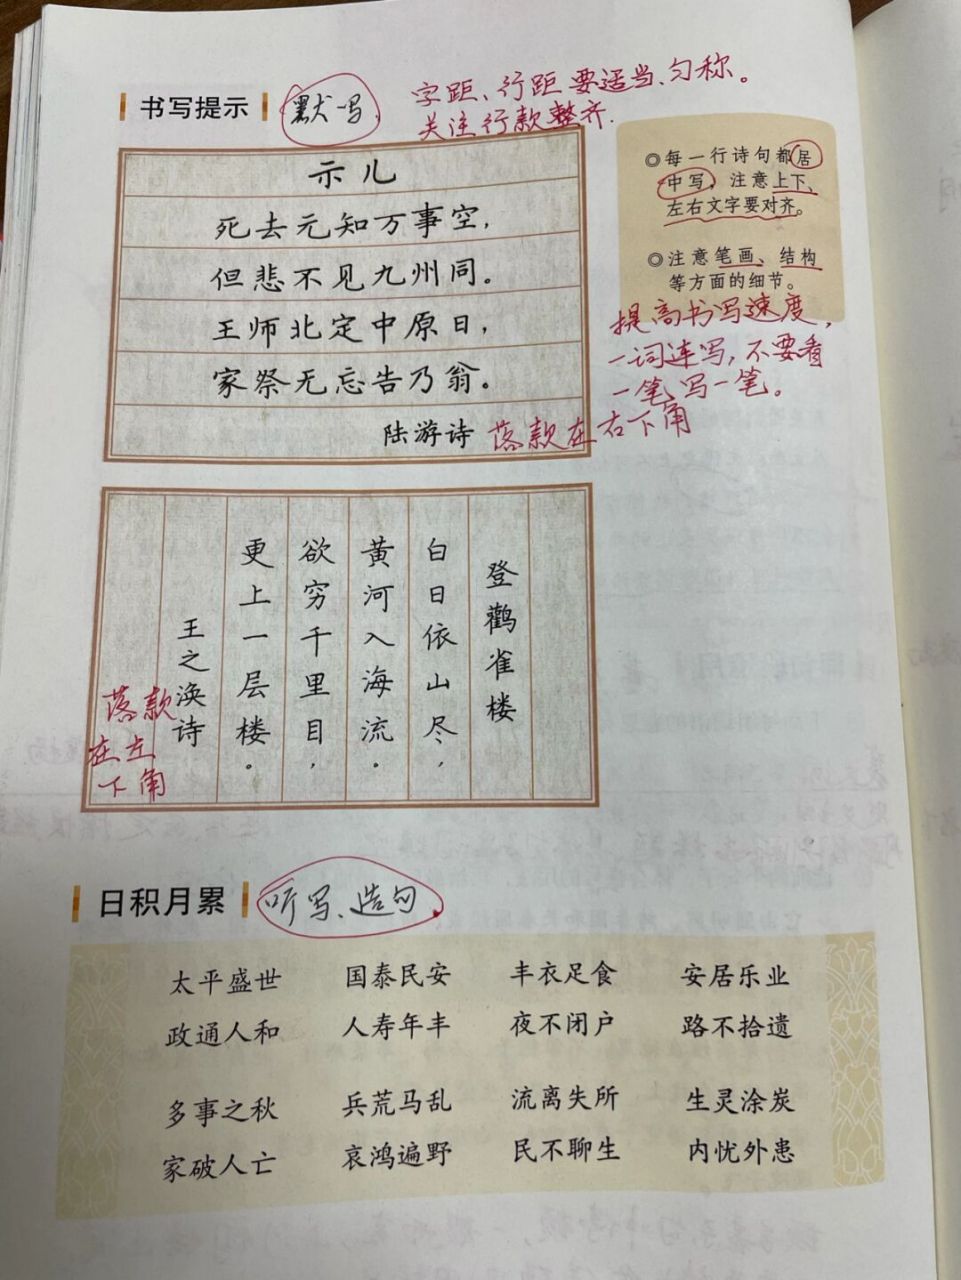 书写提示
默写
字距、行距要适当、匀称。
关注行款整齐.
示儿
死去元知万事空，
但悲不见九州同。
王师北定中原日，
家祭无忘告乃翁。
陆游诗
落款在右下角
◎每一行诗句都居
中写，注意上下、
左右文字要对齐。
◎注意笔画、结构
等方面的细节。
提高书写速度，
一词连写，不要看
一笔写一笔。
登鹳雀楼
白日依山尽，
黄河入海流。
欲穷千里目，
更上一层楼。
王之涣诗
落款
在左
下角
日积月累
听写、造句
太平盛世 国泰民安 丰衣足食 安居乐业
政通人和 人寿年丰 夜不闭户 路不拾遗
多事之秋 兵荒马乱 流离失所 生灵涂炭
家破人亡 哀鸿遍野 民不聊生 内忧外患